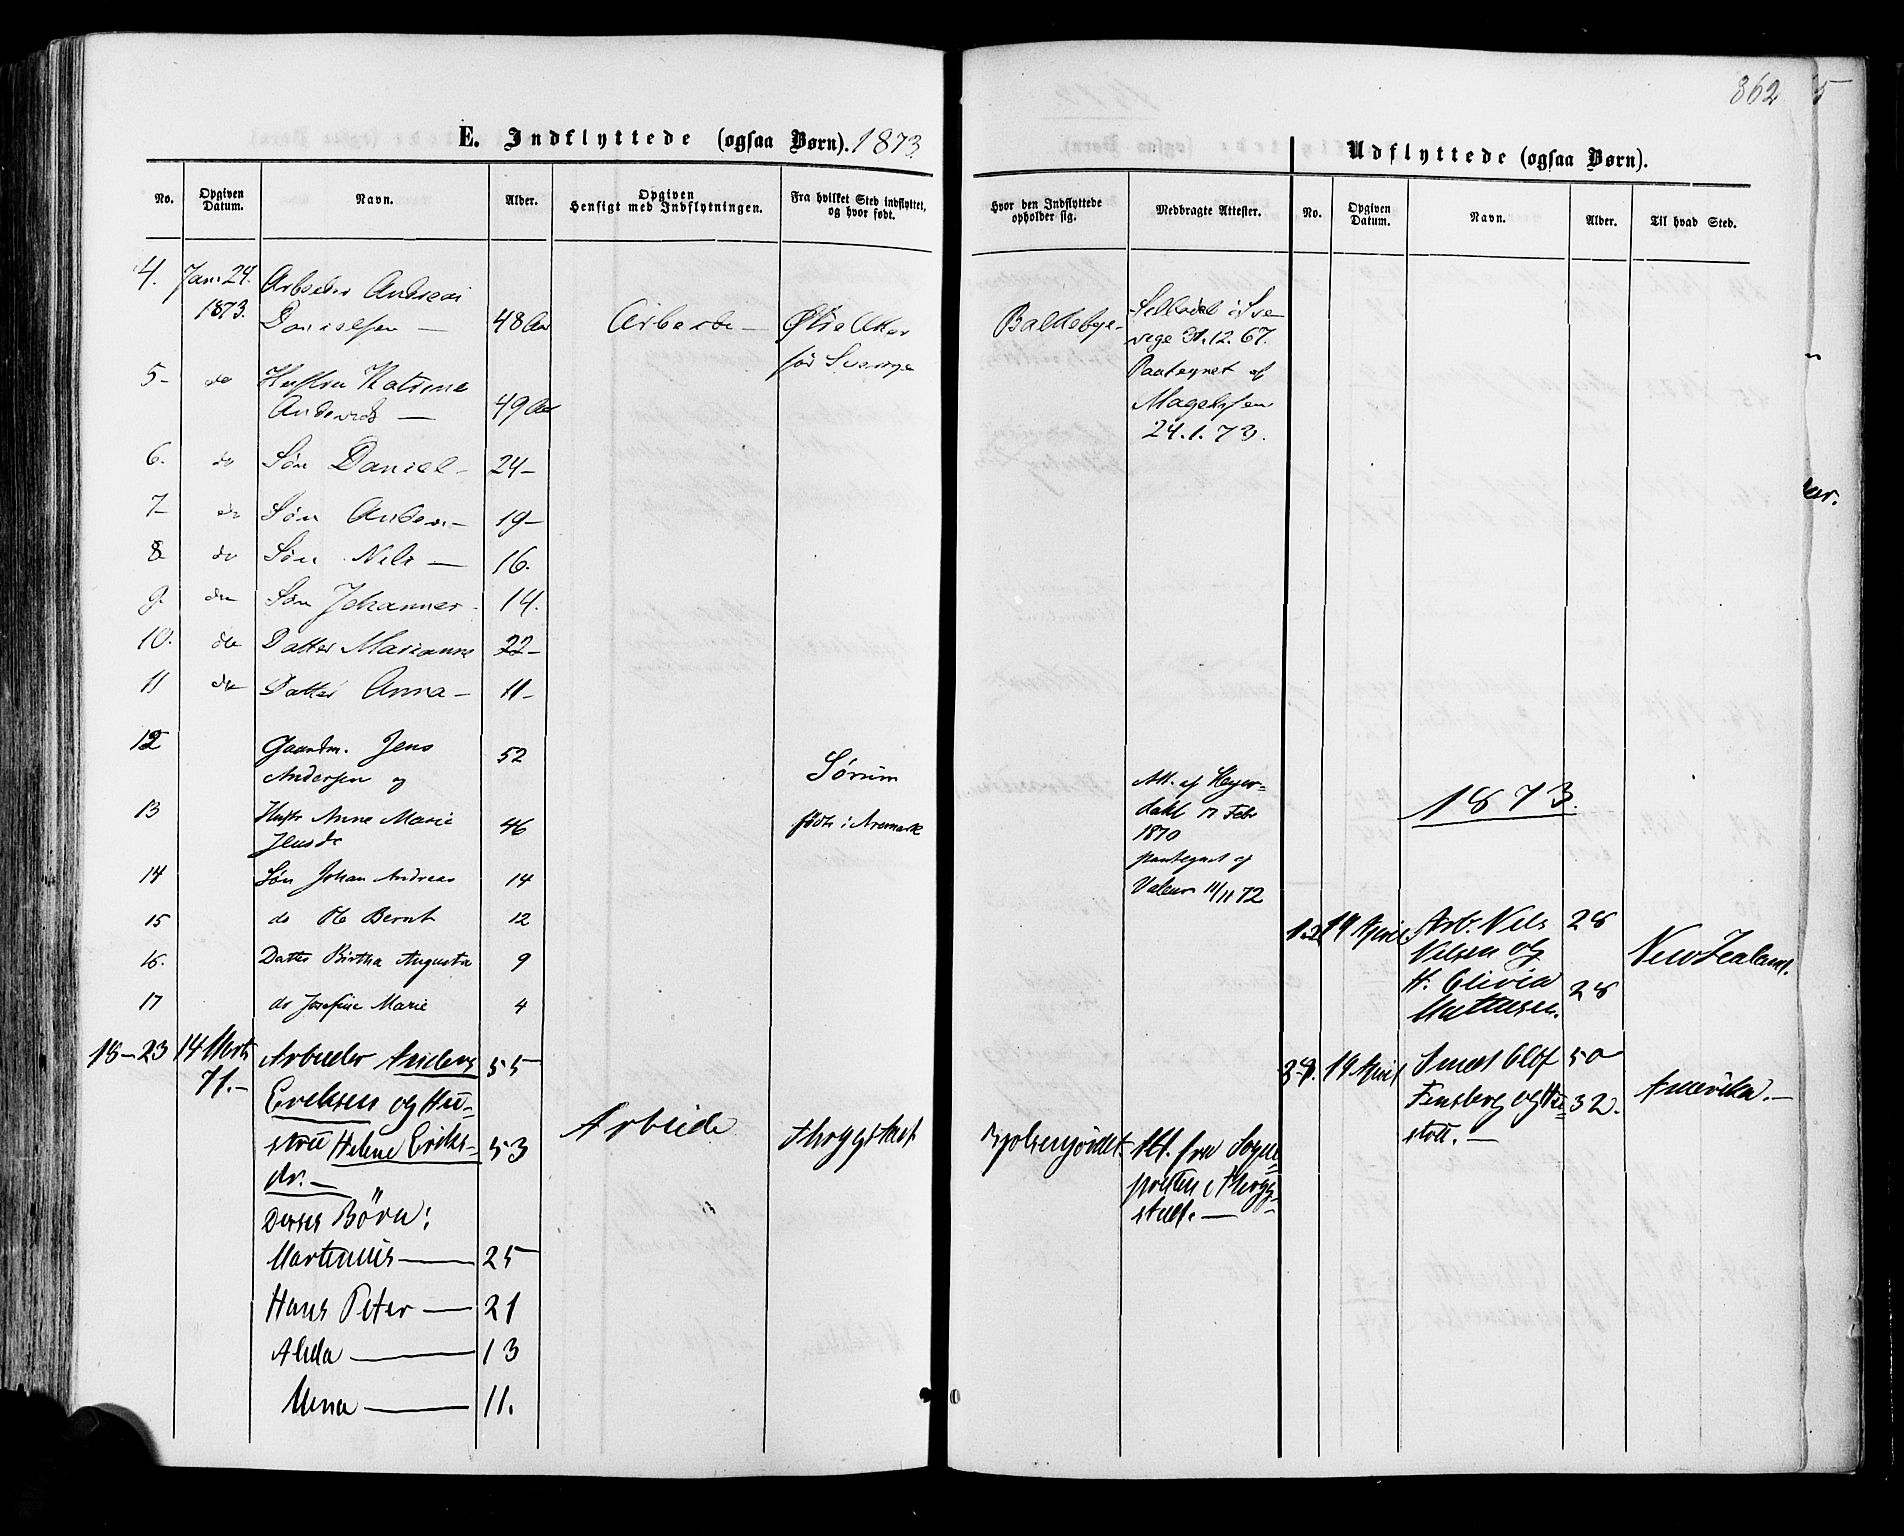 862
5
E. Indflyttede (ogsaa Børn). 1873.
Udflyttede (ogsaa Børn).
No. Opgiven Datum. Navn. Alder. Opgiven Hensigt med Indflytningen. Fra hvilket Sted indflyttet, og hvor født.
Hvor den Indflyttede opholder sig. Medbragte Attester. No. Opgiven Datum. Navn. Alder. Til hvad Sted.
4. Jan. 24. Arbeider Andreas
1873. Danielsen — 48 Aar Arbeide —
før Sverige
24.1.73.
5- do Hustru
49 Aar
6. do Søn Daniel - 24-
7- do Søn Anders - 19-
8 do Søn Nils — 16.
9. do Søn Johannes - 14.
10. do Datter Marianne 22-
11 do Datter Anna - 11-
12 Gaardm. Jens
Andersen og 52 Sørum
13 Hustr Anne Marie
Jensdr 46 født i Aremark
Att. af Heyer-
dahl 17 Febr
1870
paategnet af
11/11 72
14 Søn Johan Andreas 14
15 do Ole Bernt 12
16. Datter Birtha Augusta 9
17 do Josefine Marie 4
18-23 14 Marts Arbeider Anders 55
71.- Eriksen og Hu-
stru Helene Eriks- 53 Arbeide
dr. —
Deres Børn:
Martinius — 25
Hans Peter — 21
Alida — 13
Mina — 11.
Att. fra Sogne-
præsten i
1873.
1-2 19 April Arb. Nils 28
Nilsen og
H. Olivia 28
Mathisen.
New Zealand.
3-4. 19 April Smed Olof 50
og Hu- 32.
stru. —
Amerika. —